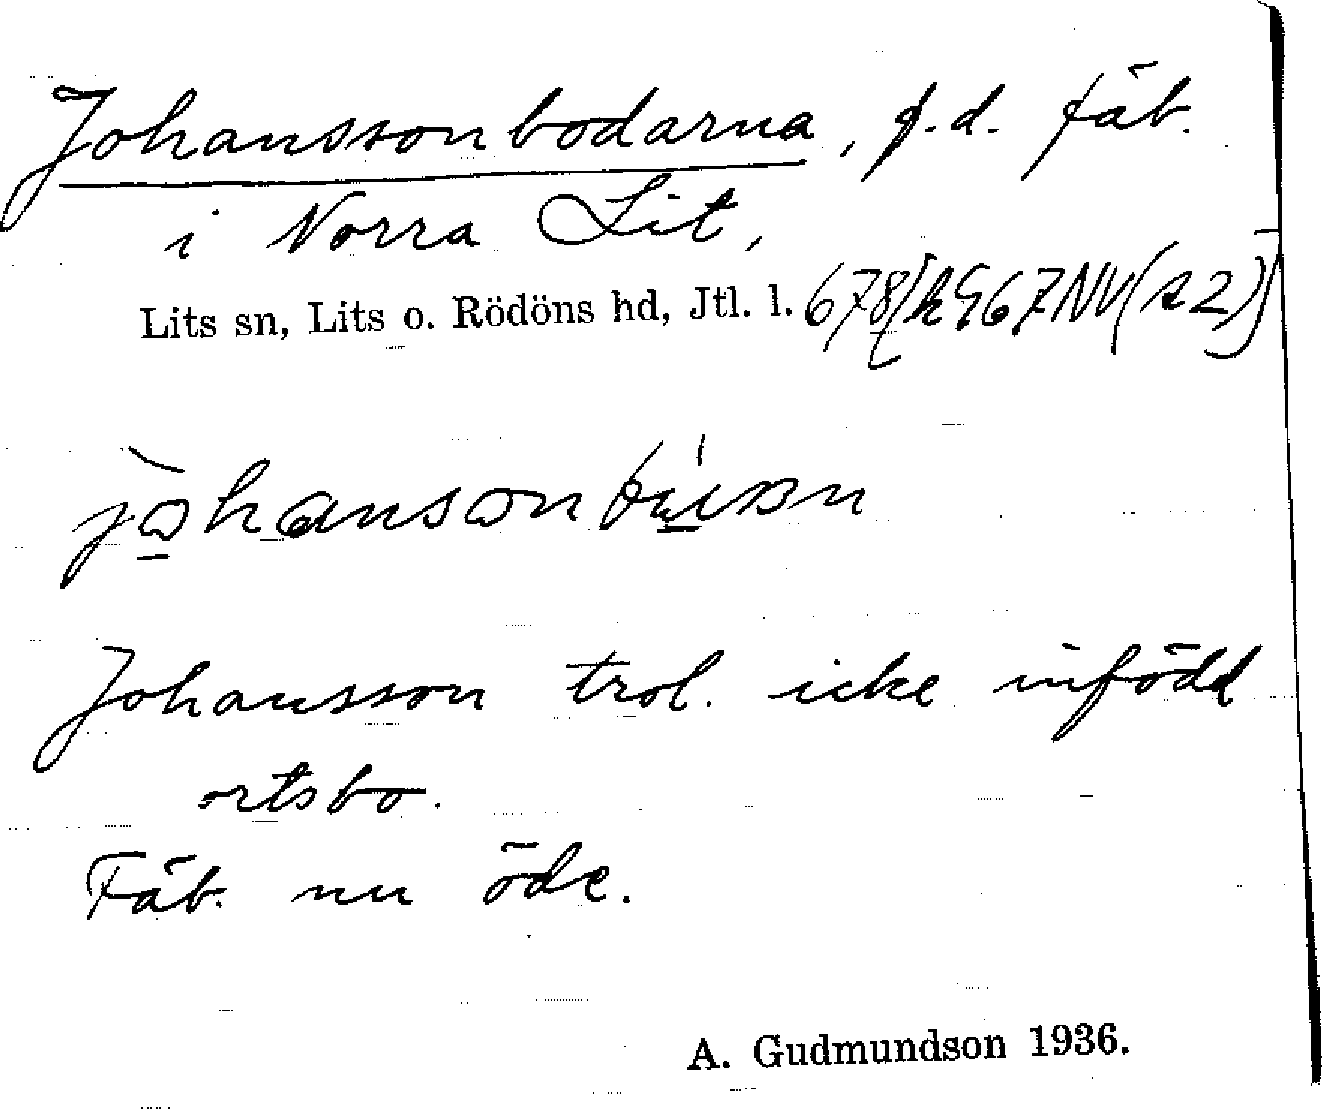 Johanssonbodarna, f.d. fäb.
i Norra Lit,
Lits sn, Lits o. Rödöns hd, Jtl. l.
Johansson trol. icke infödd
ortsbo.
Fäb. nu öde.
A. Gudmundson 1936.